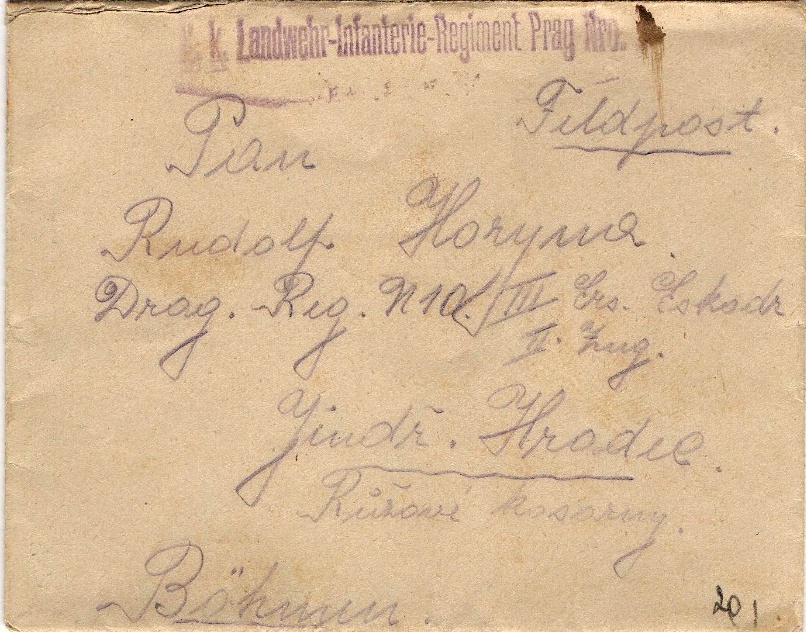 k. k. Landwehr-Infanterie-Regiment Prag Nro.
Feldpost.
Pan
Rudolf Horyna
Drag. Reg. N 10/III Ers. Eskadr
II. Zug.
Jindř. Hradec.
Růžové kasárny.
Böhmen.
201